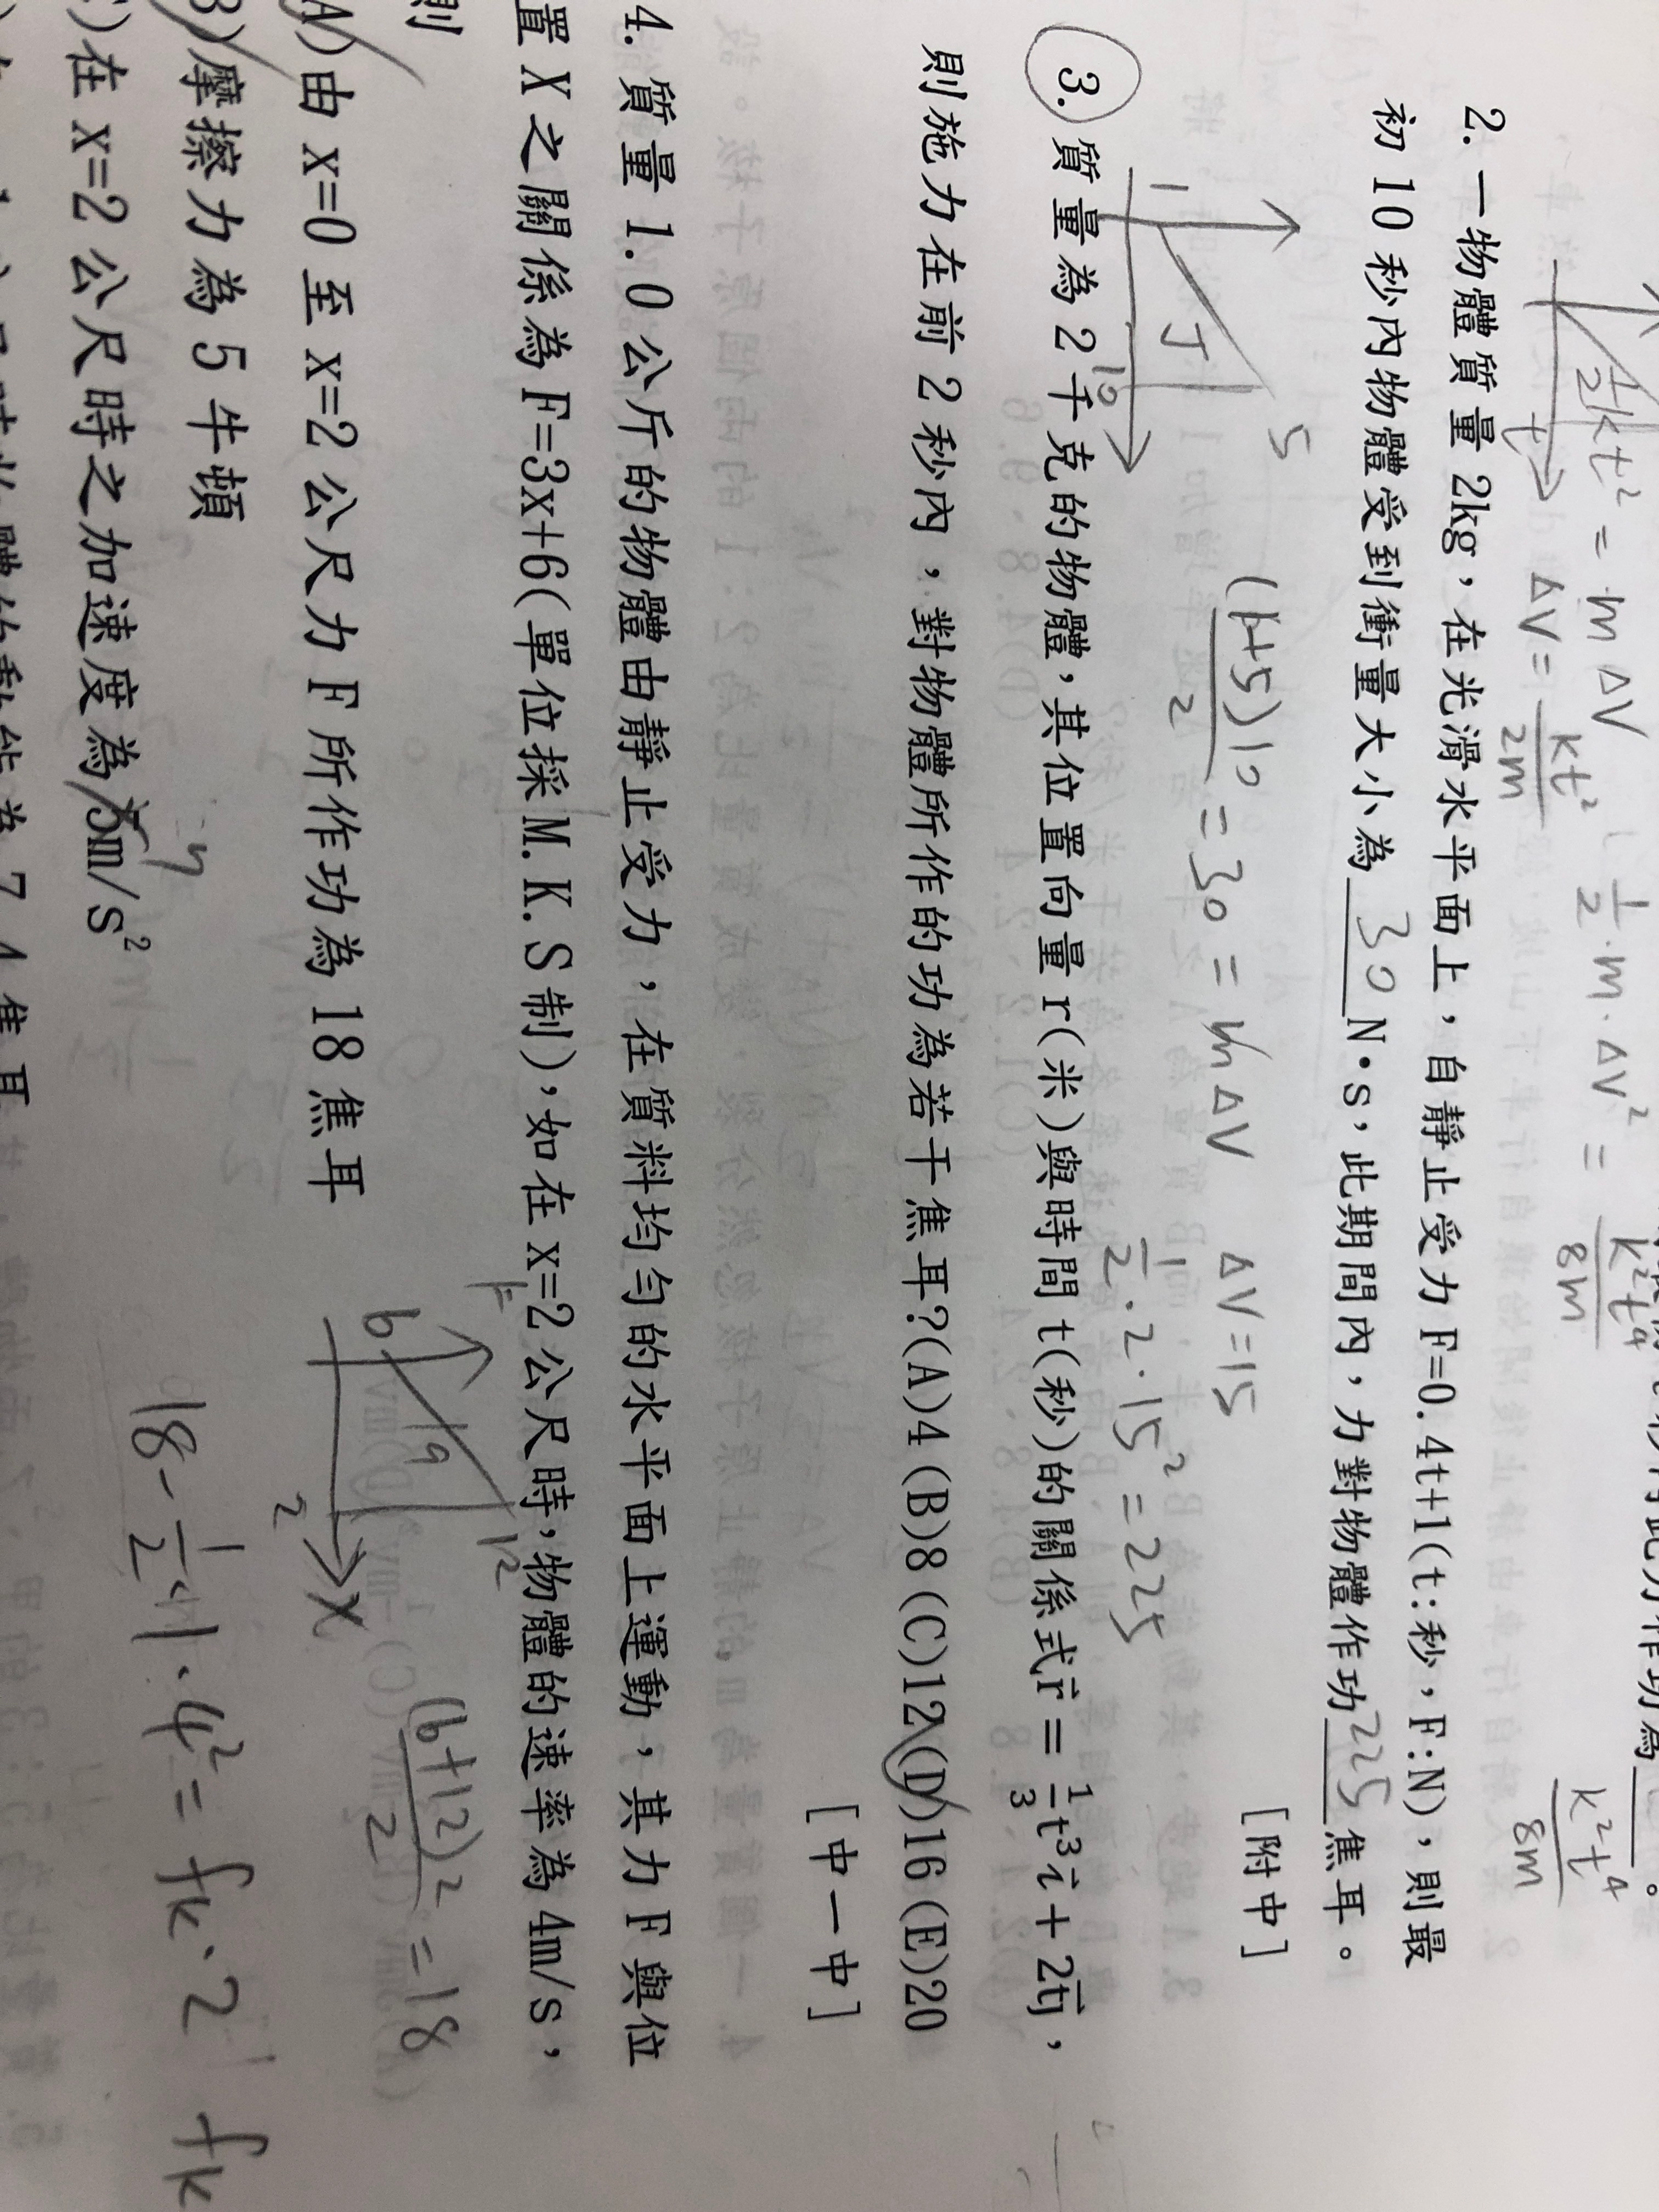 k²t⁴/8m
½kt² = mΔV
ΔV = kt²/2m
½·m·ΔV² = k²t⁴/8m
2. 一物體質量 2kg，在光滑水平面上，自靜止受力 F=0.4t+1(t:秒，F:N)，則最
初 10 秒內物體受到衝量大小為 30 N·s，此期間內，力對物體作功 225 焦耳。
[附中]
1
J
5
10
(1+5)10/2 = 30 = mΔV
ΔV=15
½·2·15² = 225
3. 質量為 2 千克的物體，其位置向量 r(米)與時間 t(秒)的關係式 r⃗ = ⅓t³i⃗ + 2tj⃗，
則施力在前 2 秒內，對物體所作的功為若干焦耳?(A)4 (B)8 (C)12 (D)16 (E)20
[中一中]
4. 質量 1.0 公斤的物體由靜止受力，在質料均勻的水平面上運動，其力 F 與位
置 X 之關係為 F=3x+6(單位採 M.K.S 制)，如在 x=2 公尺時，物體的速率為 4m/s，
則
F
6
12
2
X
(6+12)2/2 = 18
A) 由 x=0 至 x=2 公尺力 F 所作功為 18 焦耳
B) 摩擦力為 5 牛頓
18 - ½·1·4² = fk·2
fk
)在 x=2 公尺時之加速度為 5m/s²
7